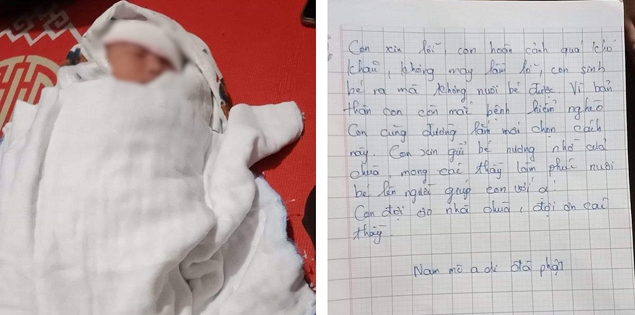 Con xin lỗi con hoàn cảnh quá khó
khăn, không may lầm lỡ con sinh
bé ra mà không nuôi bé được vì bản
thân con còn mắc bệnh hiểm nghèo
Con cùng đường lắm mới chọn cách
này. Con xin gửi bé nương nhờ cửa
chùa, mong các thầy làm phúc nuôi
bé lên người giúp con với ạ
Con đội ơn nhà chùa, đội ơn các
thầy.
Nam mô a di đà phật